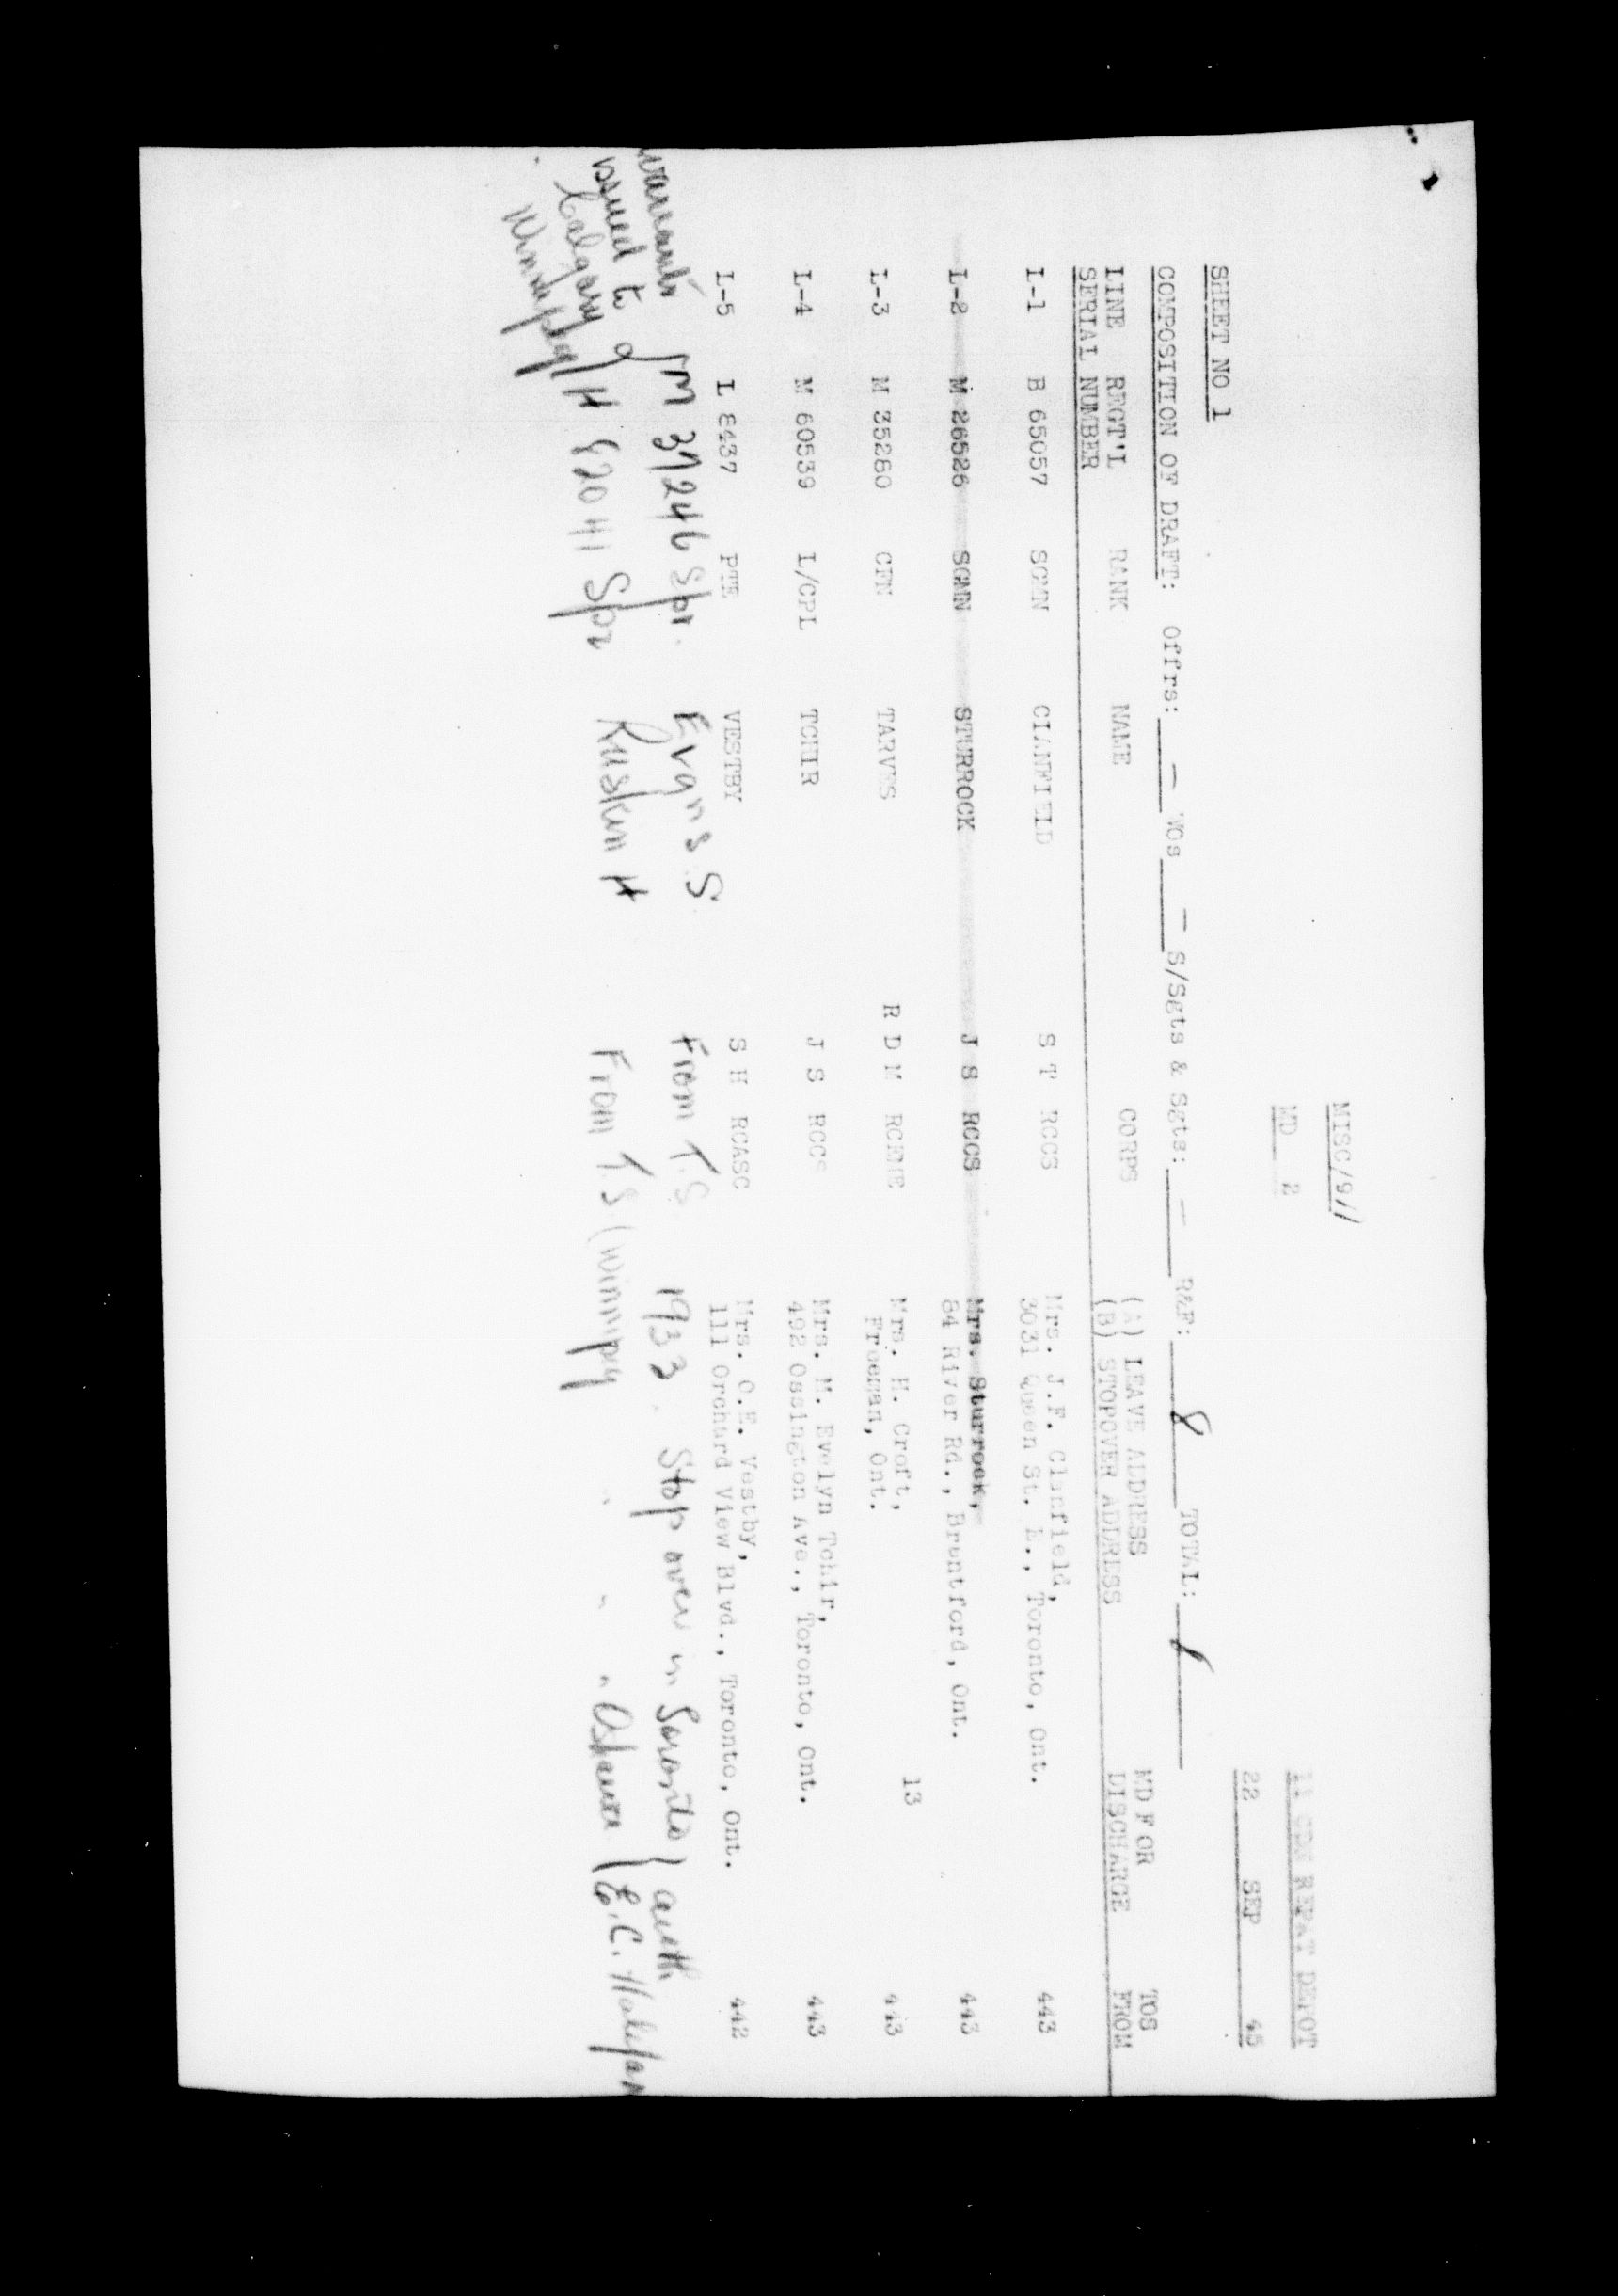 MISC/9//
11 CDN REPAT DEPOT
MD 2
22 SEP 45
SHEET NO 1
COMPOSITION OF DRAFT: Offrs: — WOs — S/Sgts & Sgts: — R&F: 8 TOTAL:
LINE REGT'L RANK NAME CORPS (A) LEAVE ADDRESS MD FOR TOS
SERIAL NUMBER (B) STOPOVER ADDRESS DISCHARGE FROM
L-1 B 65057 SGMN CLANFIELD S T RCCS Mrs. J.F. Clanfield, 443
3031 Queen St. E., Toronto, Ont.
L-2 M 26526 SGMN STURROCK J S RCCS Mrs. Sturrock, 443
84 River Rd., Brantford, Ont.
L-3 M 35280 CFN TARVES R D M RCEME Mrs. H. Croft, 13 443
Freeman, Ont.
L-4 M 60539 L/CPL TCHIR J S RCCS Mrs. M. Evelyn Tchir, 443
492 Ossington Ave., Toronto, Ont.
L-5 L 8437 PTE VESTBY S H RCASC Mrs. O.E. Vestby, 442
111 Orchard View Blvd., Toronto, Ont.
warrants
issued to
Calgary
Winnipeg
M 37246 Spr. Evans S. From T.S 1933 Stop over in Toronto } auth
H 82041 Spr Ruskin H From T.S (Winnipeg " " " Oshawa } E.C. Halifax